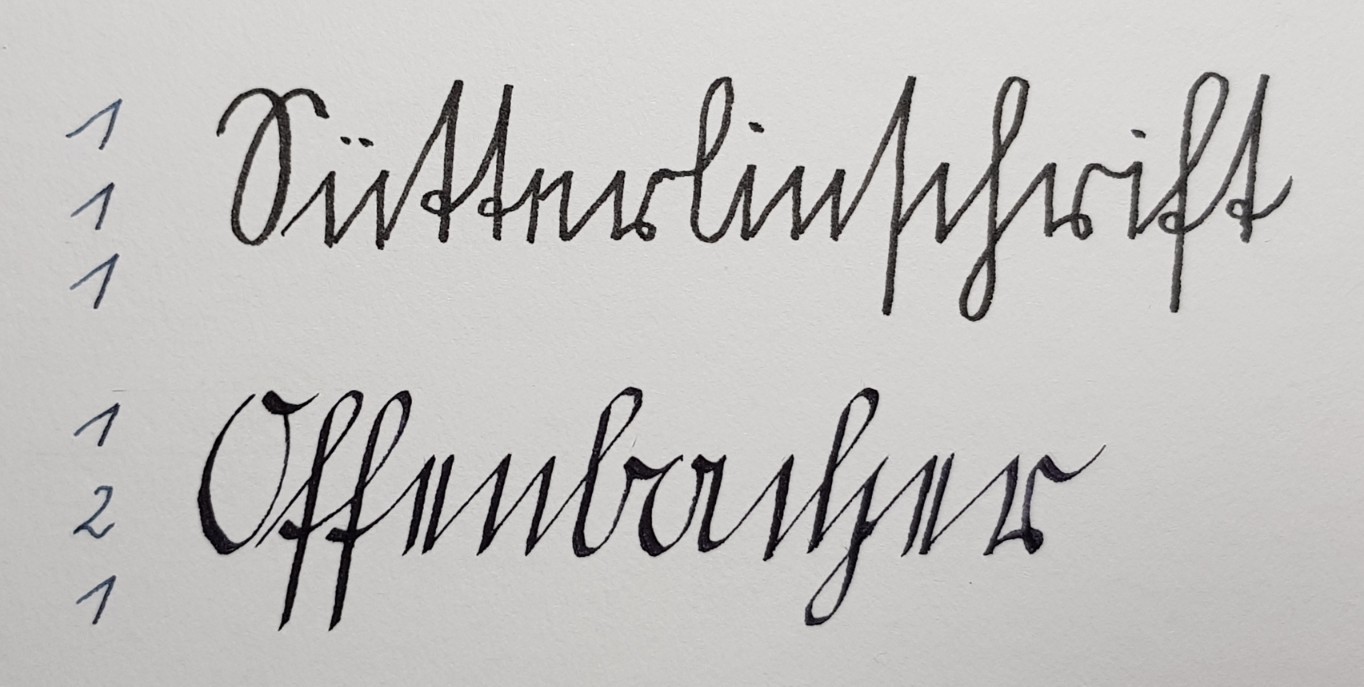 1
1 Sütterlinschrift
1
1
2 Offenbacher
1